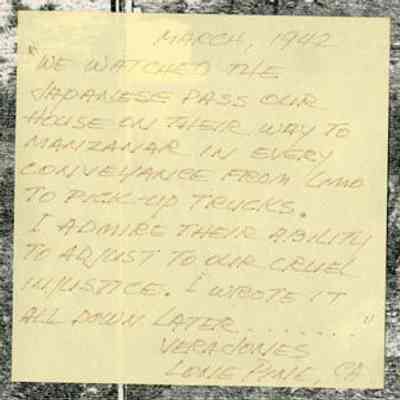 MARCH, 1942
"WE WATCHED THE
JAPANESE PASS OUR
HOUSE ON THEIR WAY TO
MANZANAR IN EVERY
CONVEYANCE FROM LIMO
TO PICK-UP TRUCKS.
I ADMIRE THEIR ABILITY
TO ADJUST TO OUR CRUEL
INJUSTICE. I WROTE IT
ALL DOWN LATER......."
VERA JONES
LONE PINE, CA